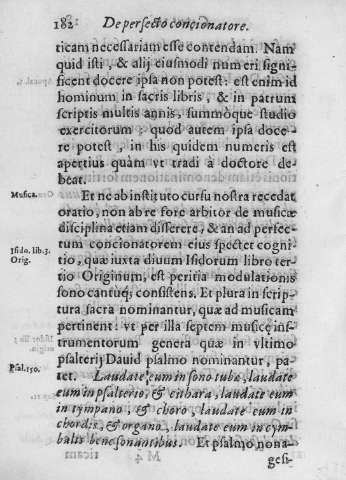 182 De perfecto concionatore.
ticam necessariam esse contendam. Nam
quid isti, & alij eiusmodi numeri signi-
ficent docere ipsa non potest: est enim id
hominum in sacris libris, & in patrum
scriptis multis annis, summòque studio
exercitorum: quod autem ipsa doce-
re potest, in his quidem numeris est
apertius quàm vt tradi à doctore de-
beat.
Musica. Et ne ab instituto cursu nostra recedat
oratio, non ab re fore arbitor de musicæ
disciplina etiam disserere, & an ad perfec-
tum concionatorem eius spectet cogni-
Isido. lib. 3. tio, quæ iuxta diuum Isidorum libro ter-
Orig. tio Originum, est peritia modulationis
sono cantuq; consistens. Et plura in scrip-
tura sacra nominantur, quæ ad musicam
pertinent: vt per illa septem musicę ins-
trumentorum genera quæ in vltimo
psalterij Dauid psalmo nominantur, pa-
Psal. 150. tet. Laudate eum in sono tubæ, laudate
eum in psalterio, & cithara, laudate eum
in tympano, & choro, laudate eum in
chordis, & organo, laudate eum in cym-
balis benesonantibus. Et psalmo nona-
gesi-